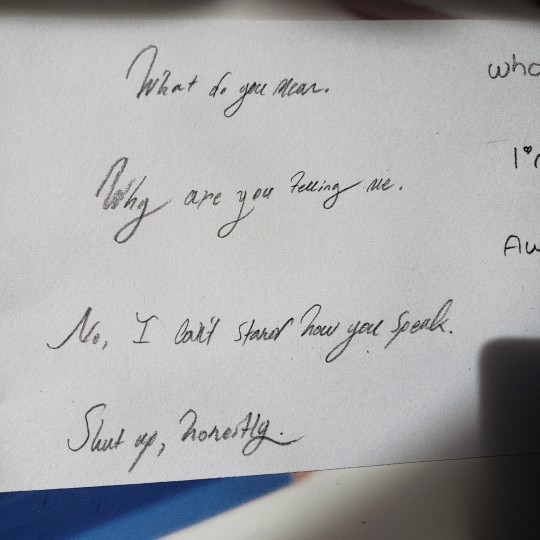 What do you mean.
Why are you telling me.
No, I can't stand how you speak.
Shut up, honestly.
who
I'
Aw